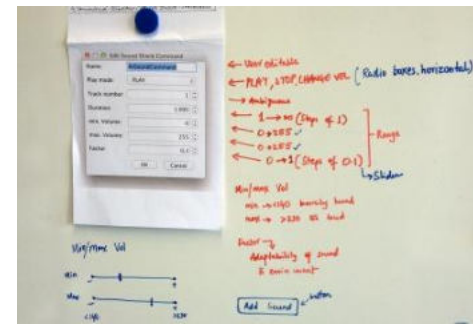 Edit Sound Block Command
Name:
Play mode: PLAY
Track number 1
Duration
min. Volume 0
max. Volume 255
Factor 0.1
OK Cancel
← User editable
← PLAY, STOP, CHANGE VOL (Radio boxes, horizontal)
→ Ambiguous
← 1 → ∞ (Steps of 1)
← 0→255 ✓
← 0→255 ✓
← 0→1 (Steps of 0.1)
Range
↳ Slider
Min/max Vol
min → <140 barely heard
max → >230 as loud
Factor →
Adaptability of sound
Min/max Vol
min
Max
<140
>230
Add Sound ← button